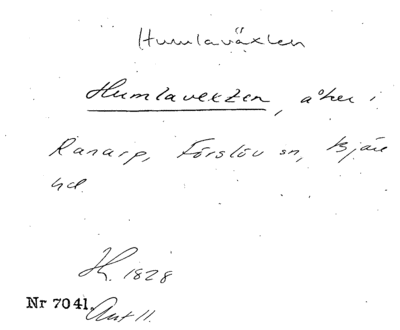 Humlaväxlen
Humlavexlen, åker i
Ranarp, Förslöv sn, Bjäre
hd
H. 1828
Nr 7041. Akt 11.